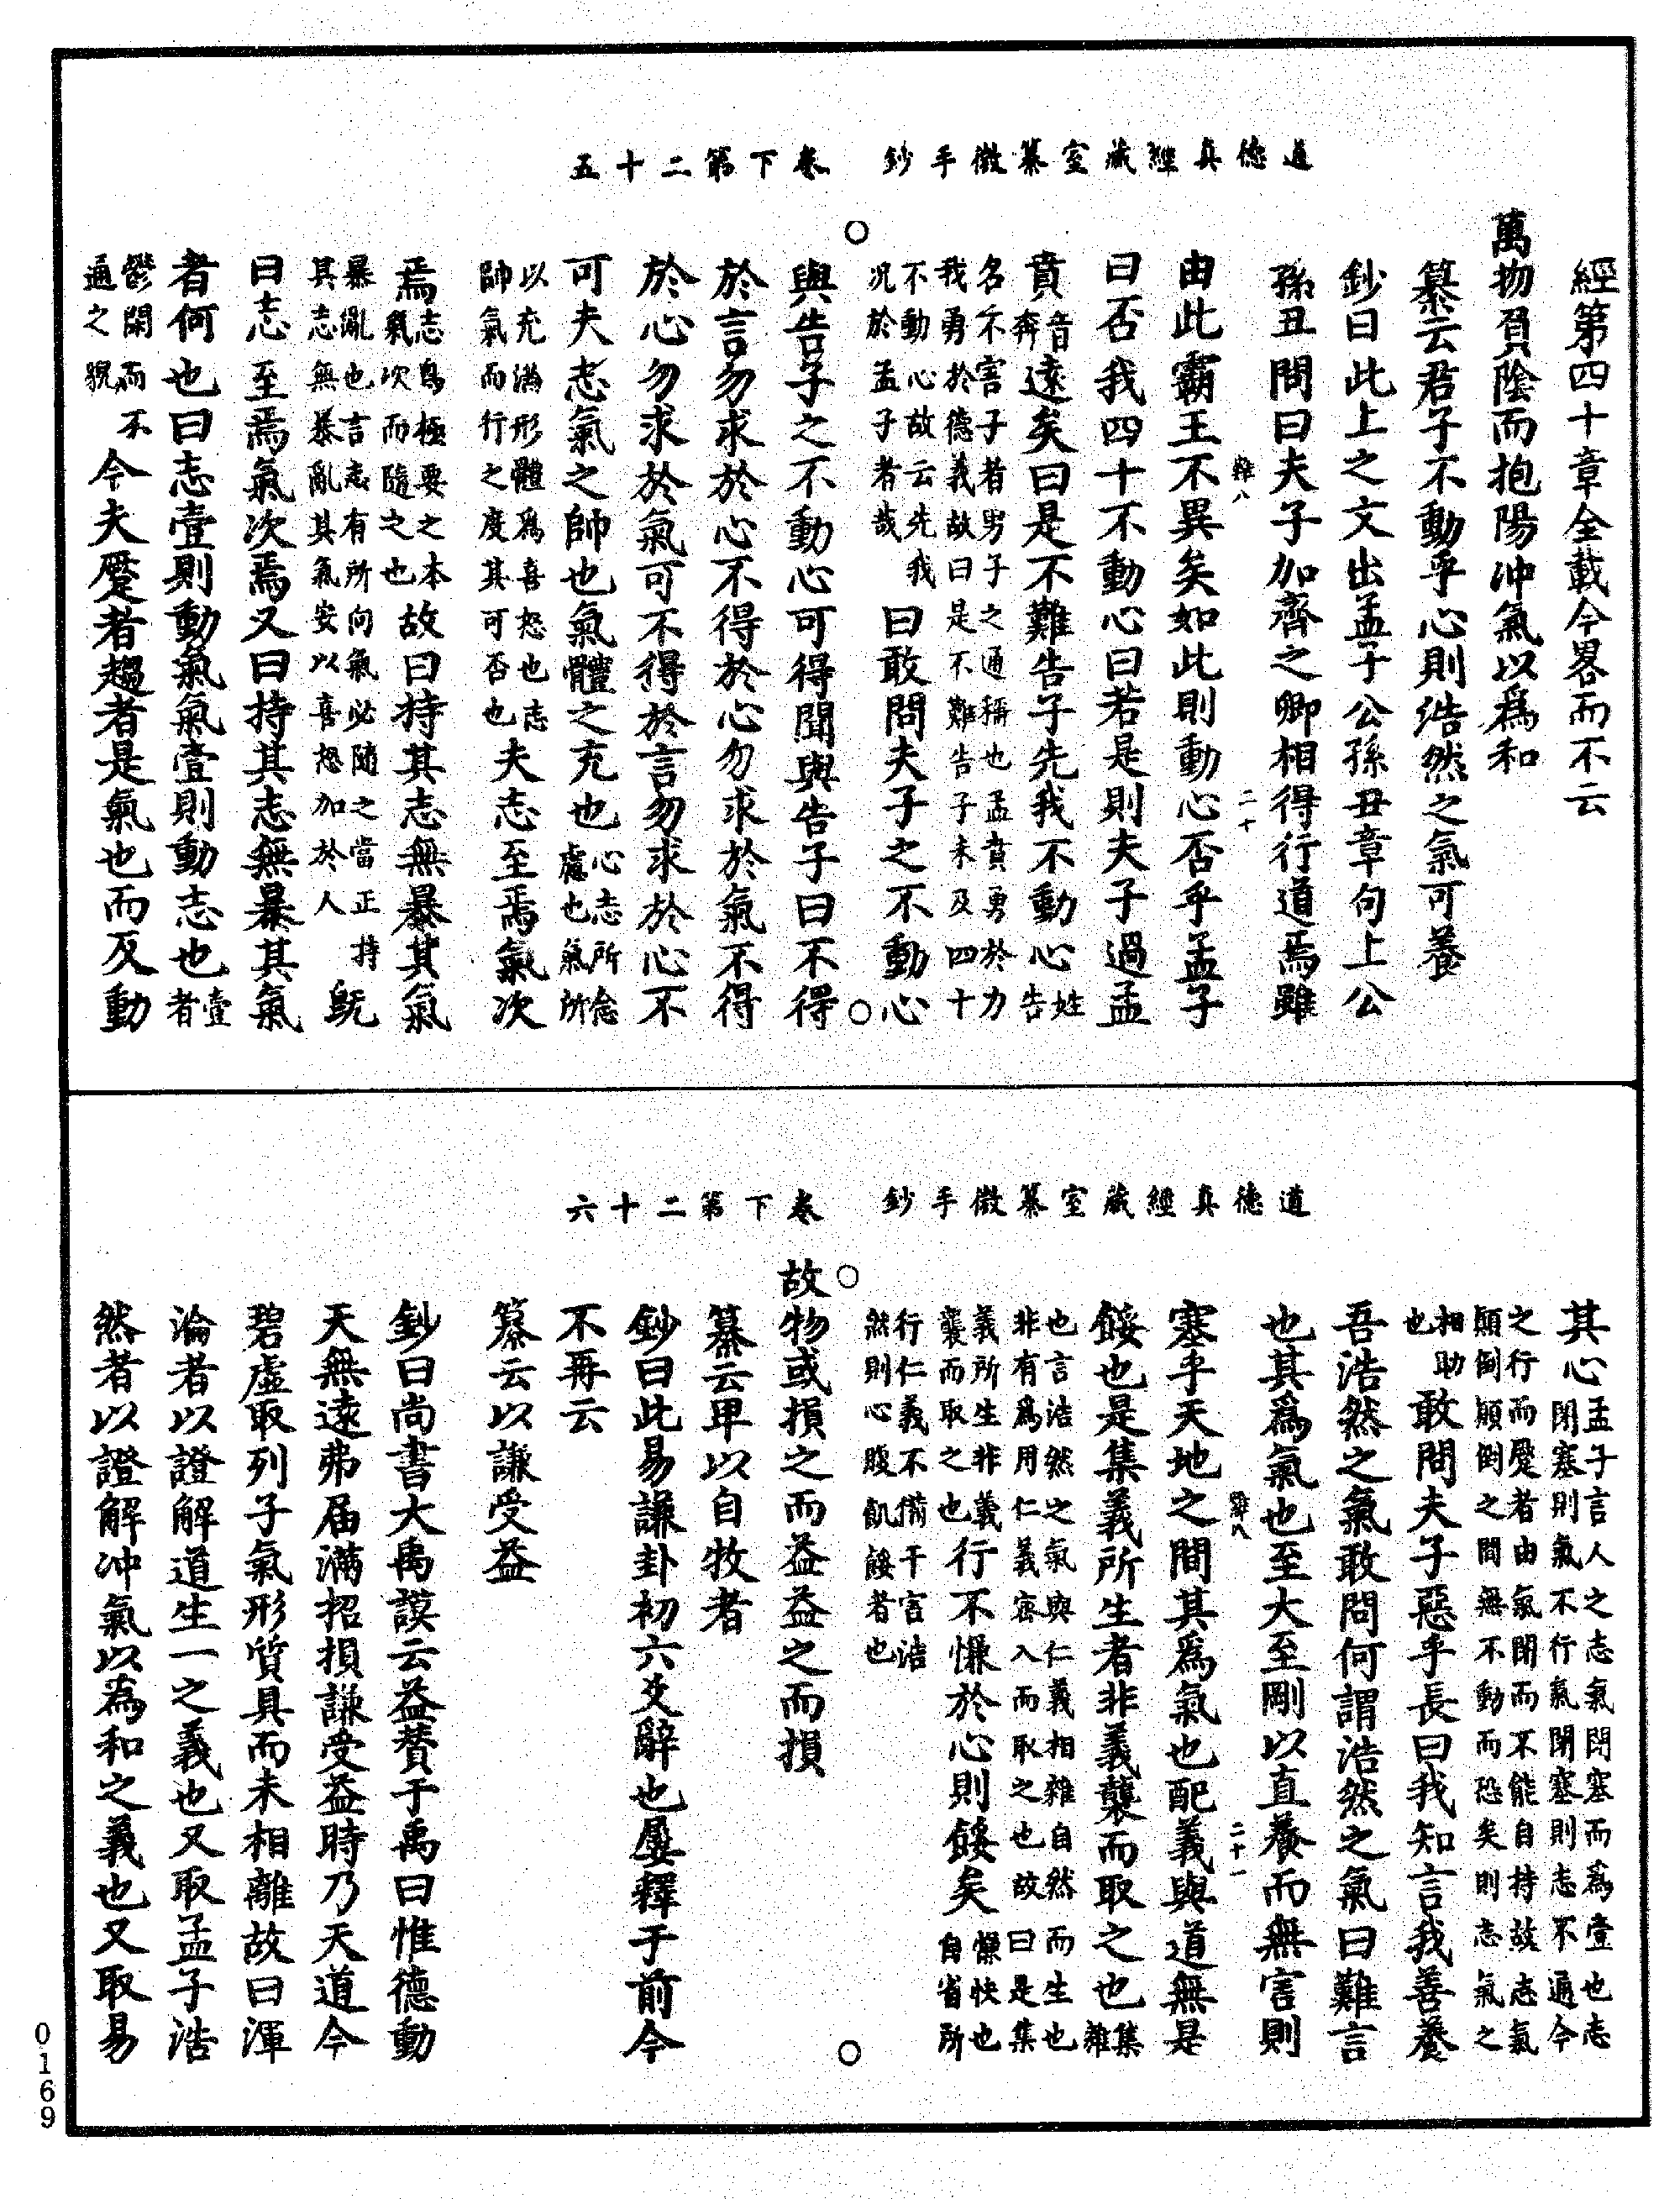 道德真經藏室纂微手鈔　卷下第二十五
經第四十章全載今畧而不云
萬物負陰而抱陽沖氣以爲和
纂云君子不動乎心則浩然之氣可養
鈔曰此上之文出孟子公孫丑章句上公
孫丑問曰夫子加齊之卿相得行道焉雖
難八　二十
由此霸王不異矣如此則動心否乎孟子
曰否我四十不動心曰若是則夫子過孟
賁音奔遠矣曰是不難告子先我不動心姓告
名不害子者男子之通稱也孟賁勇於力
我勇於德義故曰是不難告子未及四十
不動心故云先我
况於孟子者哉曰敢問夫子之不動心
與告子之不動心可得聞與告子曰不得
於言勿求於心不得於心勿求於氣不得
於心勿求於氣可不得於言勿求於心不
可夫志氣之帥也氣體之充也心志所念慮也氣所
以充滿形體爲喜怒也志
帥氣而行之度其可否也夫志至焉氣次
焉志爲極要之本氣次而隨之也故曰持其志無暴其氣
暴亂也言志有所向氣必隨之當正持
其志無暴亂其氣妄以喜怒加於人既
曰志至焉氣次焉又曰持其志無暴其氣
者何也曰志壹則動氣氣壹則動志也壹者
鬱閉而不
通之貌今夫蹷者趨者是氣也而反動
道德真經藏室纂微手鈔　卷下第二十六
其心孟子言人之志氣閉塞而爲壹也志
閉塞則氣不行氣閉塞則志不通今
之行而蹷者由氣閉而不能自持故志氣
顛倒顛倒之間無不動而恐矣則志氣之
相助也敢問夫子惡乎長曰我知言我善養
吾浩然之氣敢問何謂浩然之氣曰難言
也其爲氣也至大至剛以直養而無害則
難八　二十一
塞乎天地之間其爲氣也配義與道無是
餒也是集義所生者非義襲而取之也集雜
也言浩然之氣與仁義相雜自然而生也
非有爲用仁義密入而取之也故曰是集
義所生非義
襲而取之也行不慊於心則餒矣慊快也自省所
行仁義不備干害浩
然則心腹飢餒者也
故物或損之而益益之而損
纂云卑以自牧者
鈔曰此易謙卦初六爻辭也屢釋于前今
不再云
纂云以謙受益
鈔曰尚書大禹謨云益贊于禹曰惟德動
天無遠弗届滿招損謙受益時乃天道今
碧虛取列子氣形質具而未相離故曰渾
淪者以證解道生一之義也又取孟子浩
然者以證解沖氣以爲和之義也又取易
0169